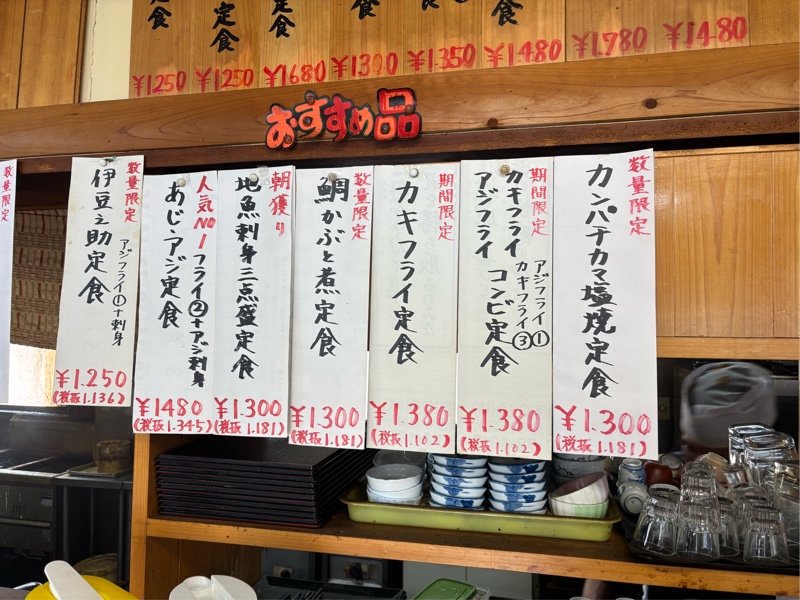 定食
定食
定食
定食
¥1250
¥1250
¥1680
¥1300
¥1.350
¥1.480
¥1.780
¥1480
おすすめ品
数量限定
カンパチカマ塩焼定食
¥1.300
(税抜1.181)
期間限定
カキフライ
アジフライ
コンビ定食
アジフライ①
カキフライ③
¥1.380
(税抜1.102)
期間限定
カキフライ定食
¥1.380
(税抜1.102)
数量限定
鯛かぶと煮定食
¥1.300
(税抜1.181)
朝獲り
地魚刺身三点盛定食
¥1.300
(税抜1.181)
人気NO1
フライ②+アジ刺身
あじ・アジ定食
¥1480
(税抜1.345)
数量限定
伊豆之助定食
アジフライ①+刺身
¥1.250
(税抜1.136)
数量限定